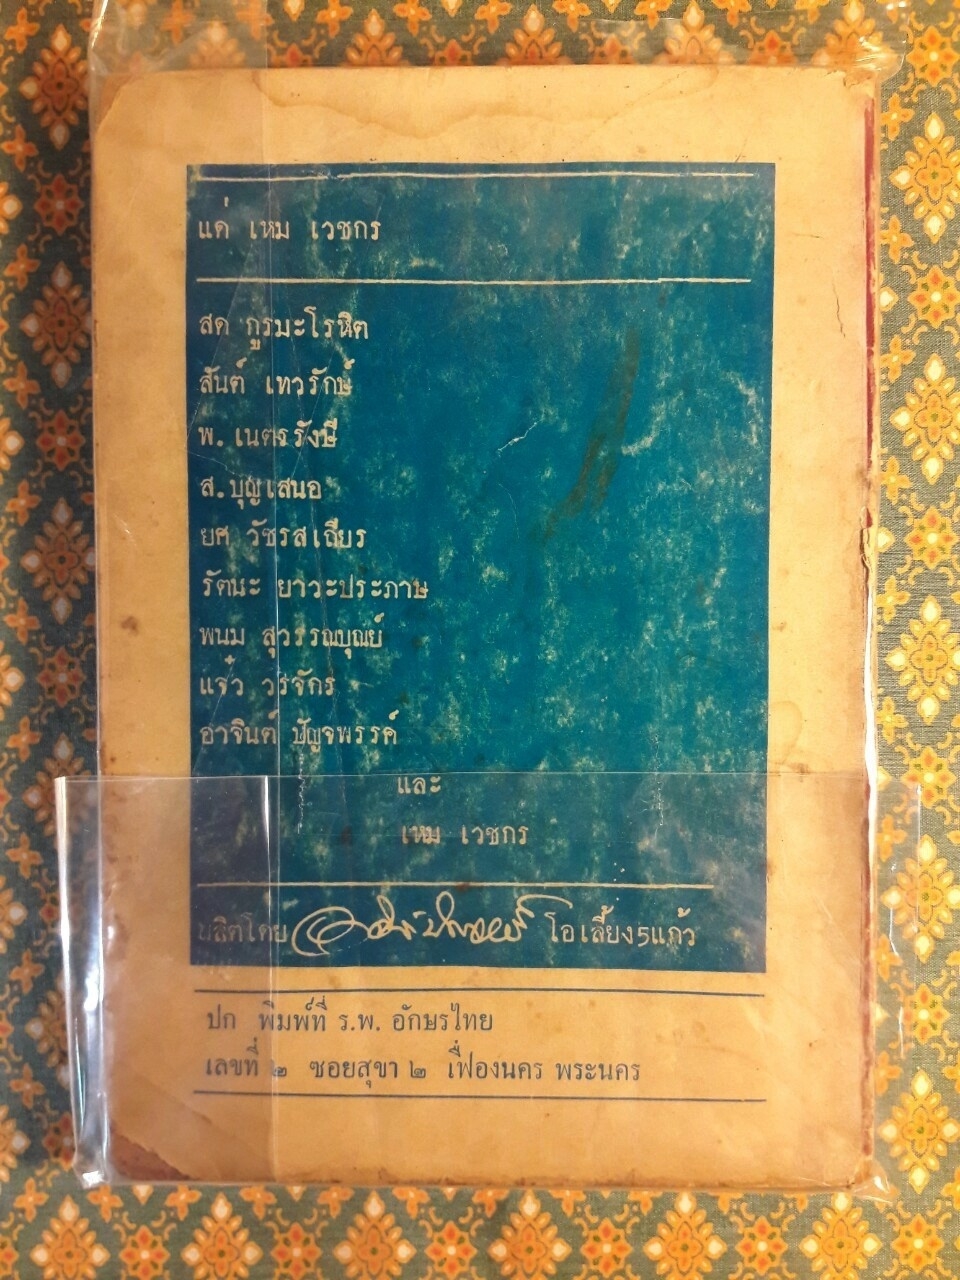 แด่ เหม เวชกร
สด กูรมะโรหิต
สันต์ เทวรักษ์
พ. เนตรรังษี
ส. บุญเสนอ
ยศ วัชรสเถียร
รัตนะ ยาวะประภาษ
พนม สุวรรณบุณย์
แจ๋ว วรจักร
อาจินต์ ปัญจพรรค์
และ
เหม เวชกร
ผลิตโดย อาจินต์ ปัญจพรรค์ โอเลี้ยง5แก้ว
ปก พิมพ์ที่ ร.พ. อักษรไทย
เลขที่ ๒ ซอยสุขา ๒ เฟื่องนคร พระนคร